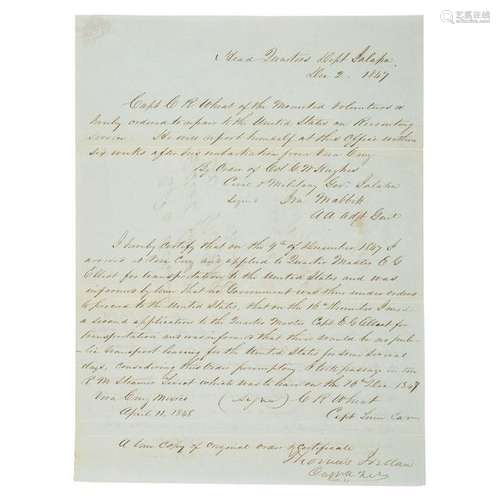 Head Quarters Dept Jalapa
Dec 2. 1847
Capt C R Wheat of the Mounted Volunteers is
hereby ordered to repair to the United States on Recruiting
service. He will report himself at this Office within
six weeks after his embarkation from Vera Cruz
By Order of Col G W Hughes
Civil & Military Gov. Jalapa
Signed
A A Adjt Genl
I hereby Certify that on the 9th of December 1847 I
arrived at Vera Cruz and applied to Quarter Master E G
Elliott for transportation to the United States and was
informed by him that no Government was then under orders
to proceed to the United States, that on the 16th I made
a second application to the Quarter Master Capt E G Elliott for
transportation and was informed that there would be no pub-
lic transport leaving for the United States for some several
days, considering this Order peremptory I took passage in the
R M Steamer which was to leave on the 16 Dec 1847
Vera Cruz Mexico (Signed) C R Wheat
April 11. 1848 Capt
A true Copy of original Order & Certificate
Thomas Jordan